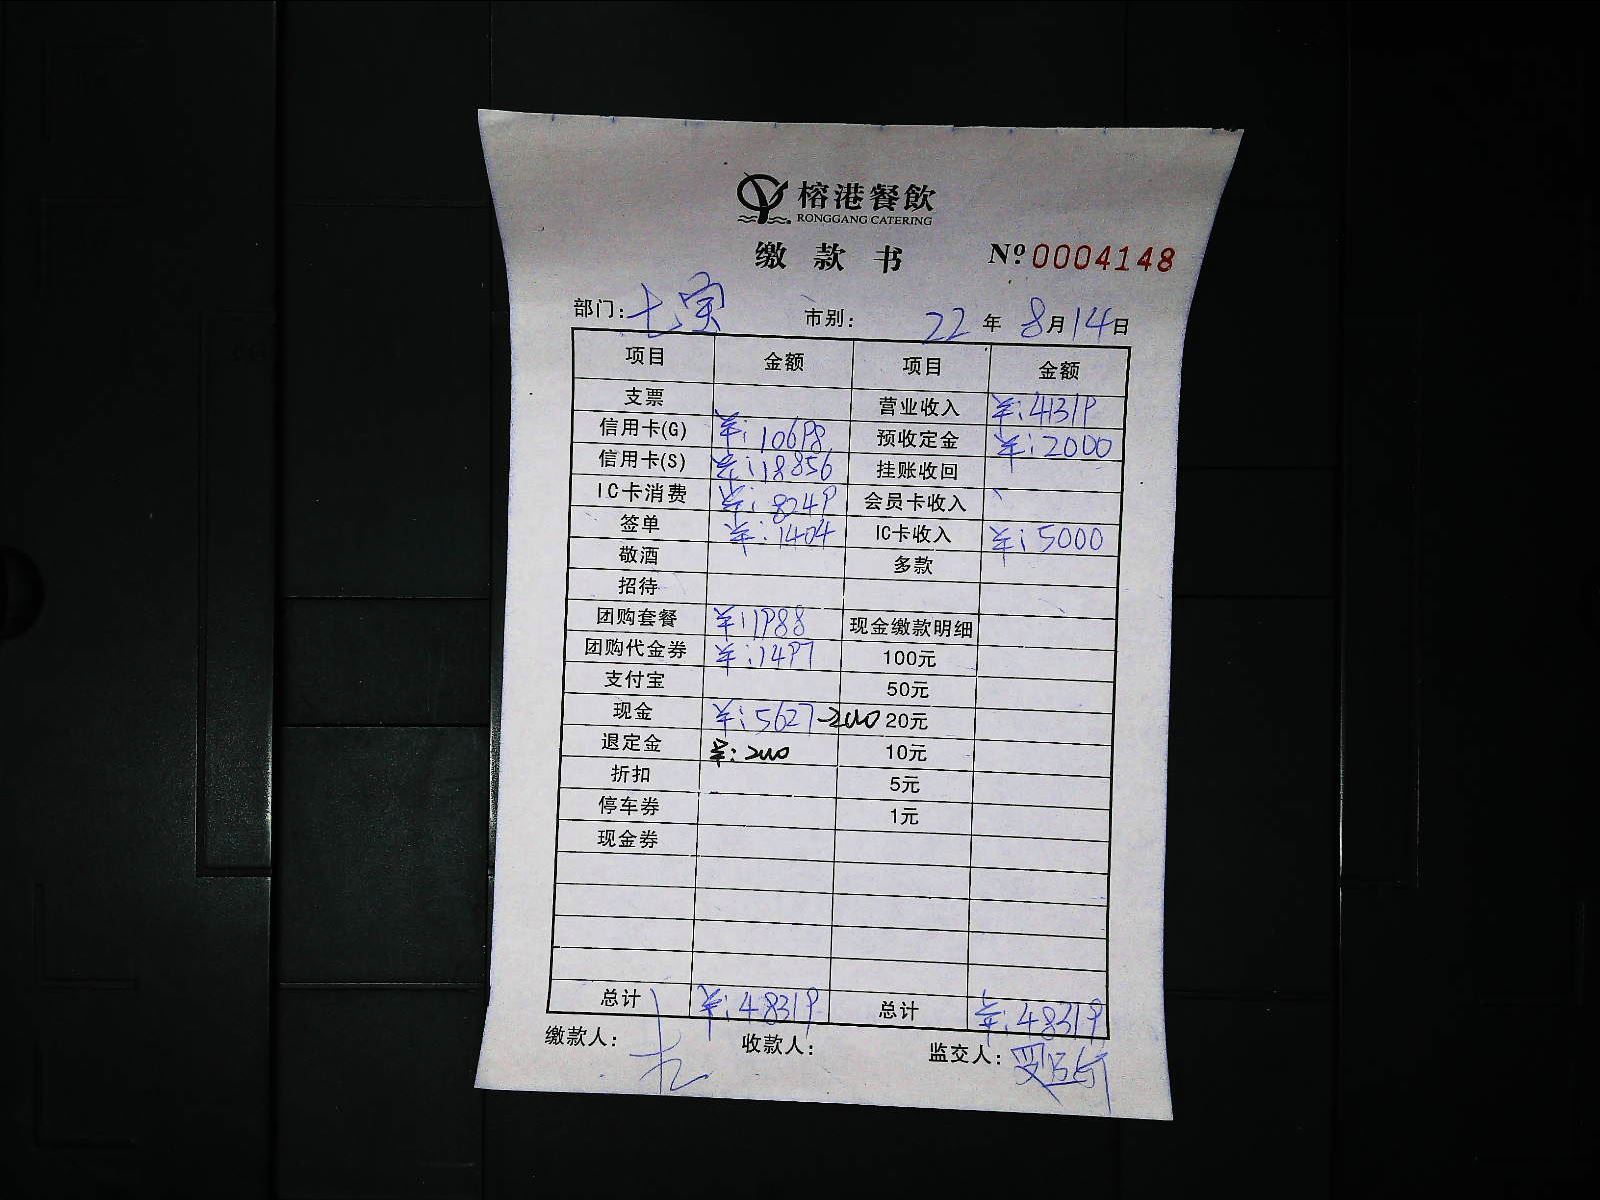 榕港餐飲
RONGGANG CATERING
缴款书 Nº 0004148
部门: 市别: 22年 8月14日
项目 金额 项目 金额
支票 营业收入 ¥:41319
信用卡(G) ¥:10698 预收定金 ¥:2000
信用卡(S) ¥:18856 挂账收回
IC卡消费 ¥:8249 会员卡收入
签单 ¥:1404 IC卡收入 ¥:5000
敬酒 多款
招待
团购套餐 ¥:1988 现金缴款明细
团购代金券 ¥:1497 100元
支付宝 50元
现金 ¥:5627-2000 20元
退定金 ¥:2000 10元
折扣 5元
停车券 1元
现金券
总计 ¥:48319 总计 ¥:48319
缴款人: 收款人: 监交人: